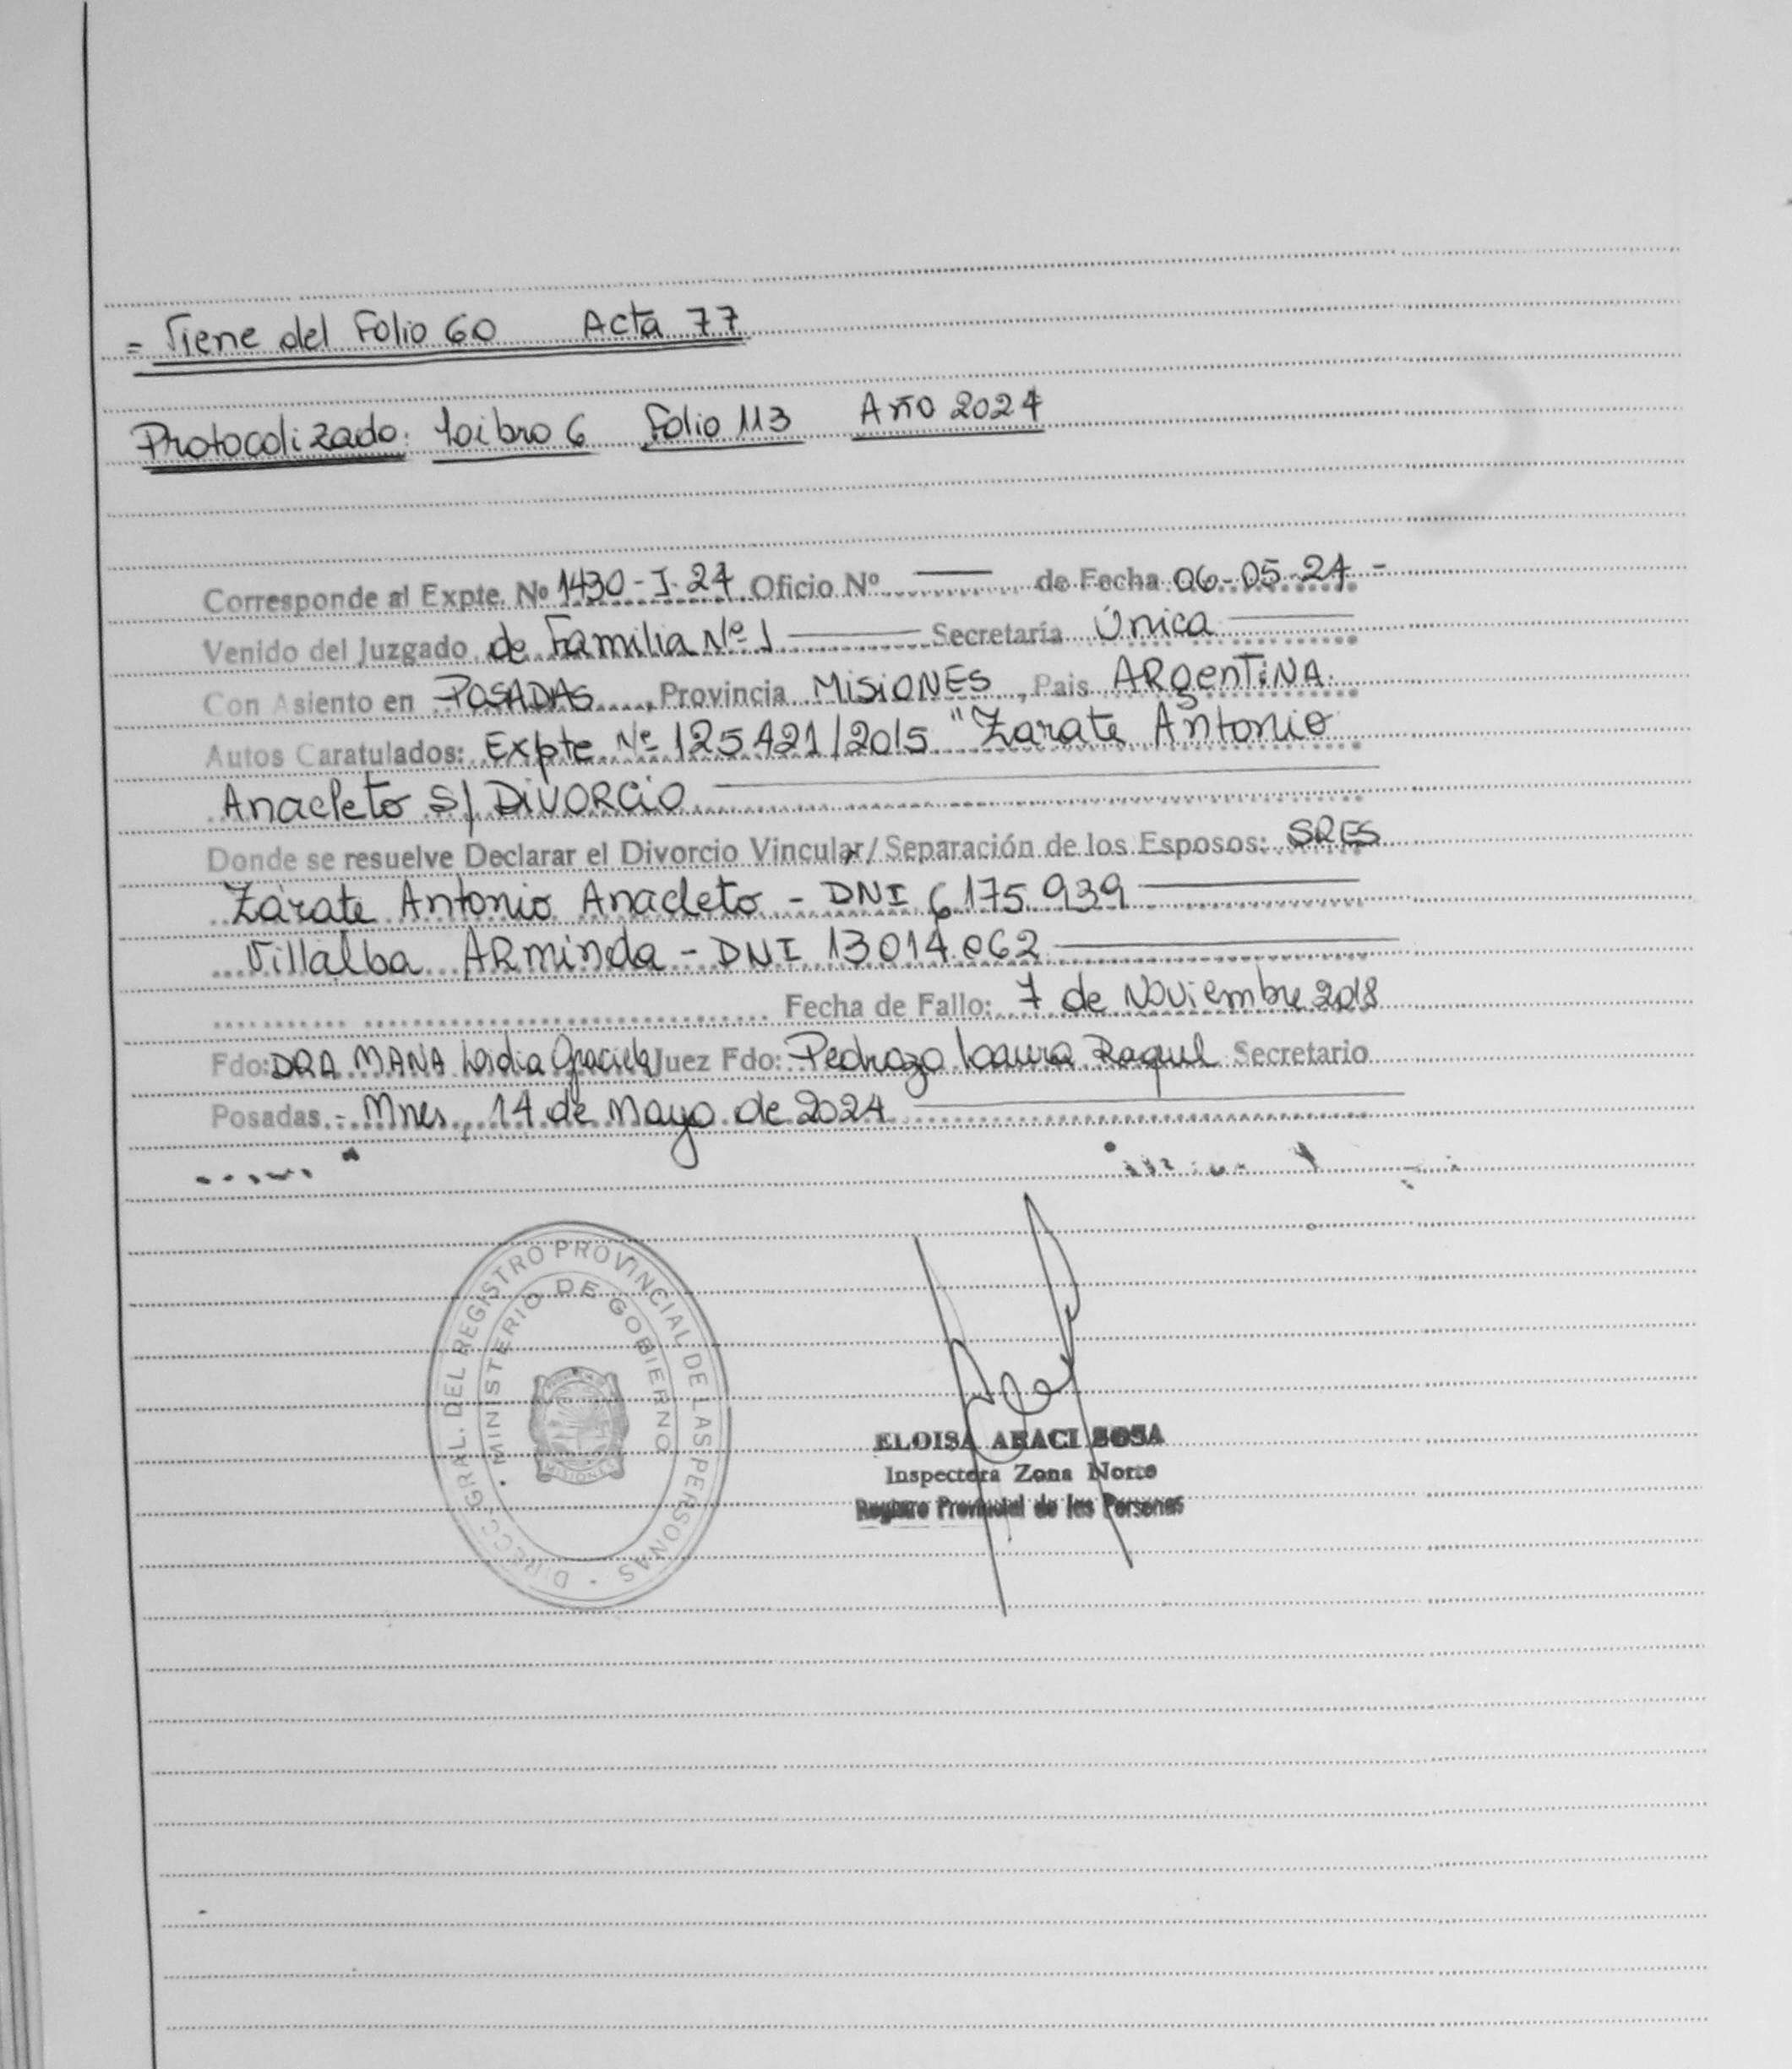 = Viene del Folio 60 Acta 77
Protocolizado: Libro 6 Folio 113 Año 2024
Corresponde al Expte. Nº 1430-I-24 Oficio Nº —— de Fecha 06-05-24 -
Venido del Juzgado de Familia Nº 1 —— Secretaría Única ——
Con Asiento en POSADAS, Provincia MISIONES, Pais ARgenTiNA.
Autos Caratulados: Expte Nº 125421/2015 "Zarate Antonio
Anacleto S/ DIVORCIO ——
Donde se resuelve Declarar el Divorcio Vincular/Separación de los Esposos: SRES
Zárate Antonio Anacleto - DNI 6.175.939 ——
Villalba ARminda - DNI 13.014.062 ——
Fecha de Fallo: 7 de Noviembre 2018
Fdo: DRA MANA Lidia Graciela Juez Fdo: Pedrozo Laura Raquel Secretario
Posadas.- Mnes, 14 de Mayo de 2024 ——
DIRECC. GRAL. DEL REGISTRO PROVINCIAL DE LAS PERSONAS
MINISTERIO DE GOBIERNO
MISIONES
ELOISA ARACI SOSA
Inspectora Zona Norte
Registro Provincial de las Personas